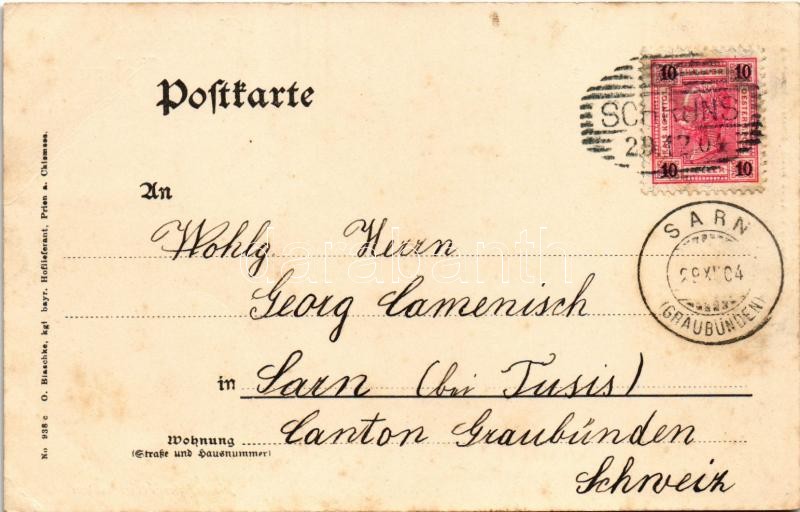 Postkarte
10 10
SCHRUNS
29 12 04
10 10
An
SARN
29 XII 04
(GRAUBÜNDEN)
Wohlg. Herrn
Georg Camenisch
in Sarn (bei Tusis)
Wohnung Canton Graubünden
(Straße und Hausnummer)
Schweiz
No 938 c O. Blaschke, kgl bayr. Hoflieferant, Prien a. Chiemsee.
darabanth